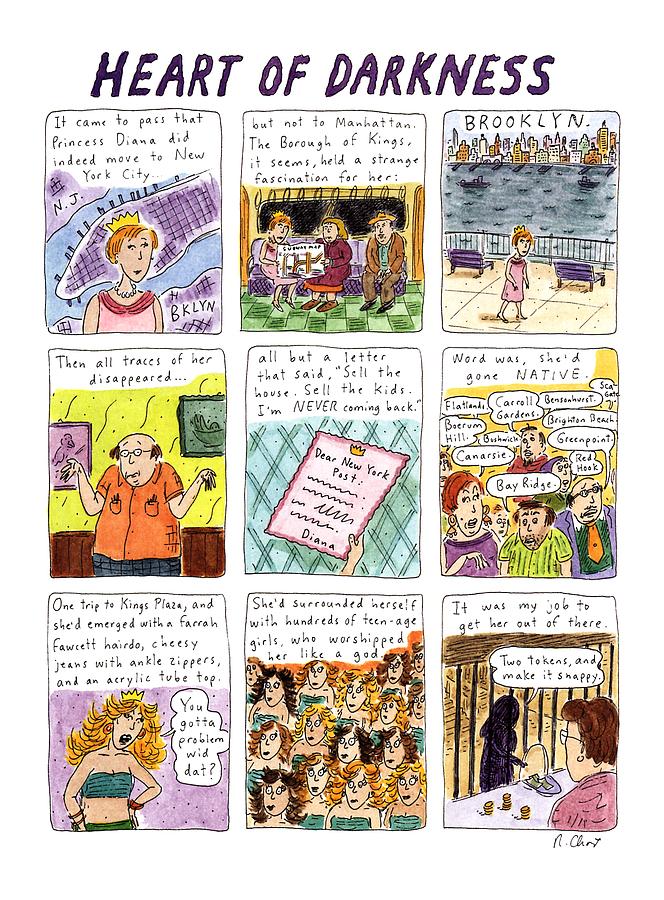 HEART OF DARKNESS
It came to pass that
Princess Diana did
indeed move to New
York City...
N.J.
BKLYN
but not to Manhattan.
The Borough of Kings,
it seems, held a strange
fascination for her:
SUBWAY MAP
BROOKLYN.
Then all traces of her
disappeared...
all but a letter
that said, "Sell the
house. Sell the kids.
I'm NEVER coming back."
Dear New York
Post,
Diana
Word was, she'd
gone NATIVE.
Flatlands.
Carroll
Gardens.
Bensonhurst.
Boerum
Hill.
Bushwick
Brighton Beach.
Greenpoint.
Canarsie.
Red
Hook
Bay Ridge.
One trip to Kings Plaza, and
she'd emerged with a Farrah
Fawcett hairdo, cheesy
jeans with ankle zippers,
and an acrylic tube top.
You
gotta
problem
wid
dat?
She'd surrounded herself
with hundreds of teen-age
girls, who worshipped
her like a god.
It was my job to
get her out of there.
Two tokens, and
make it snappy.
R. Chast